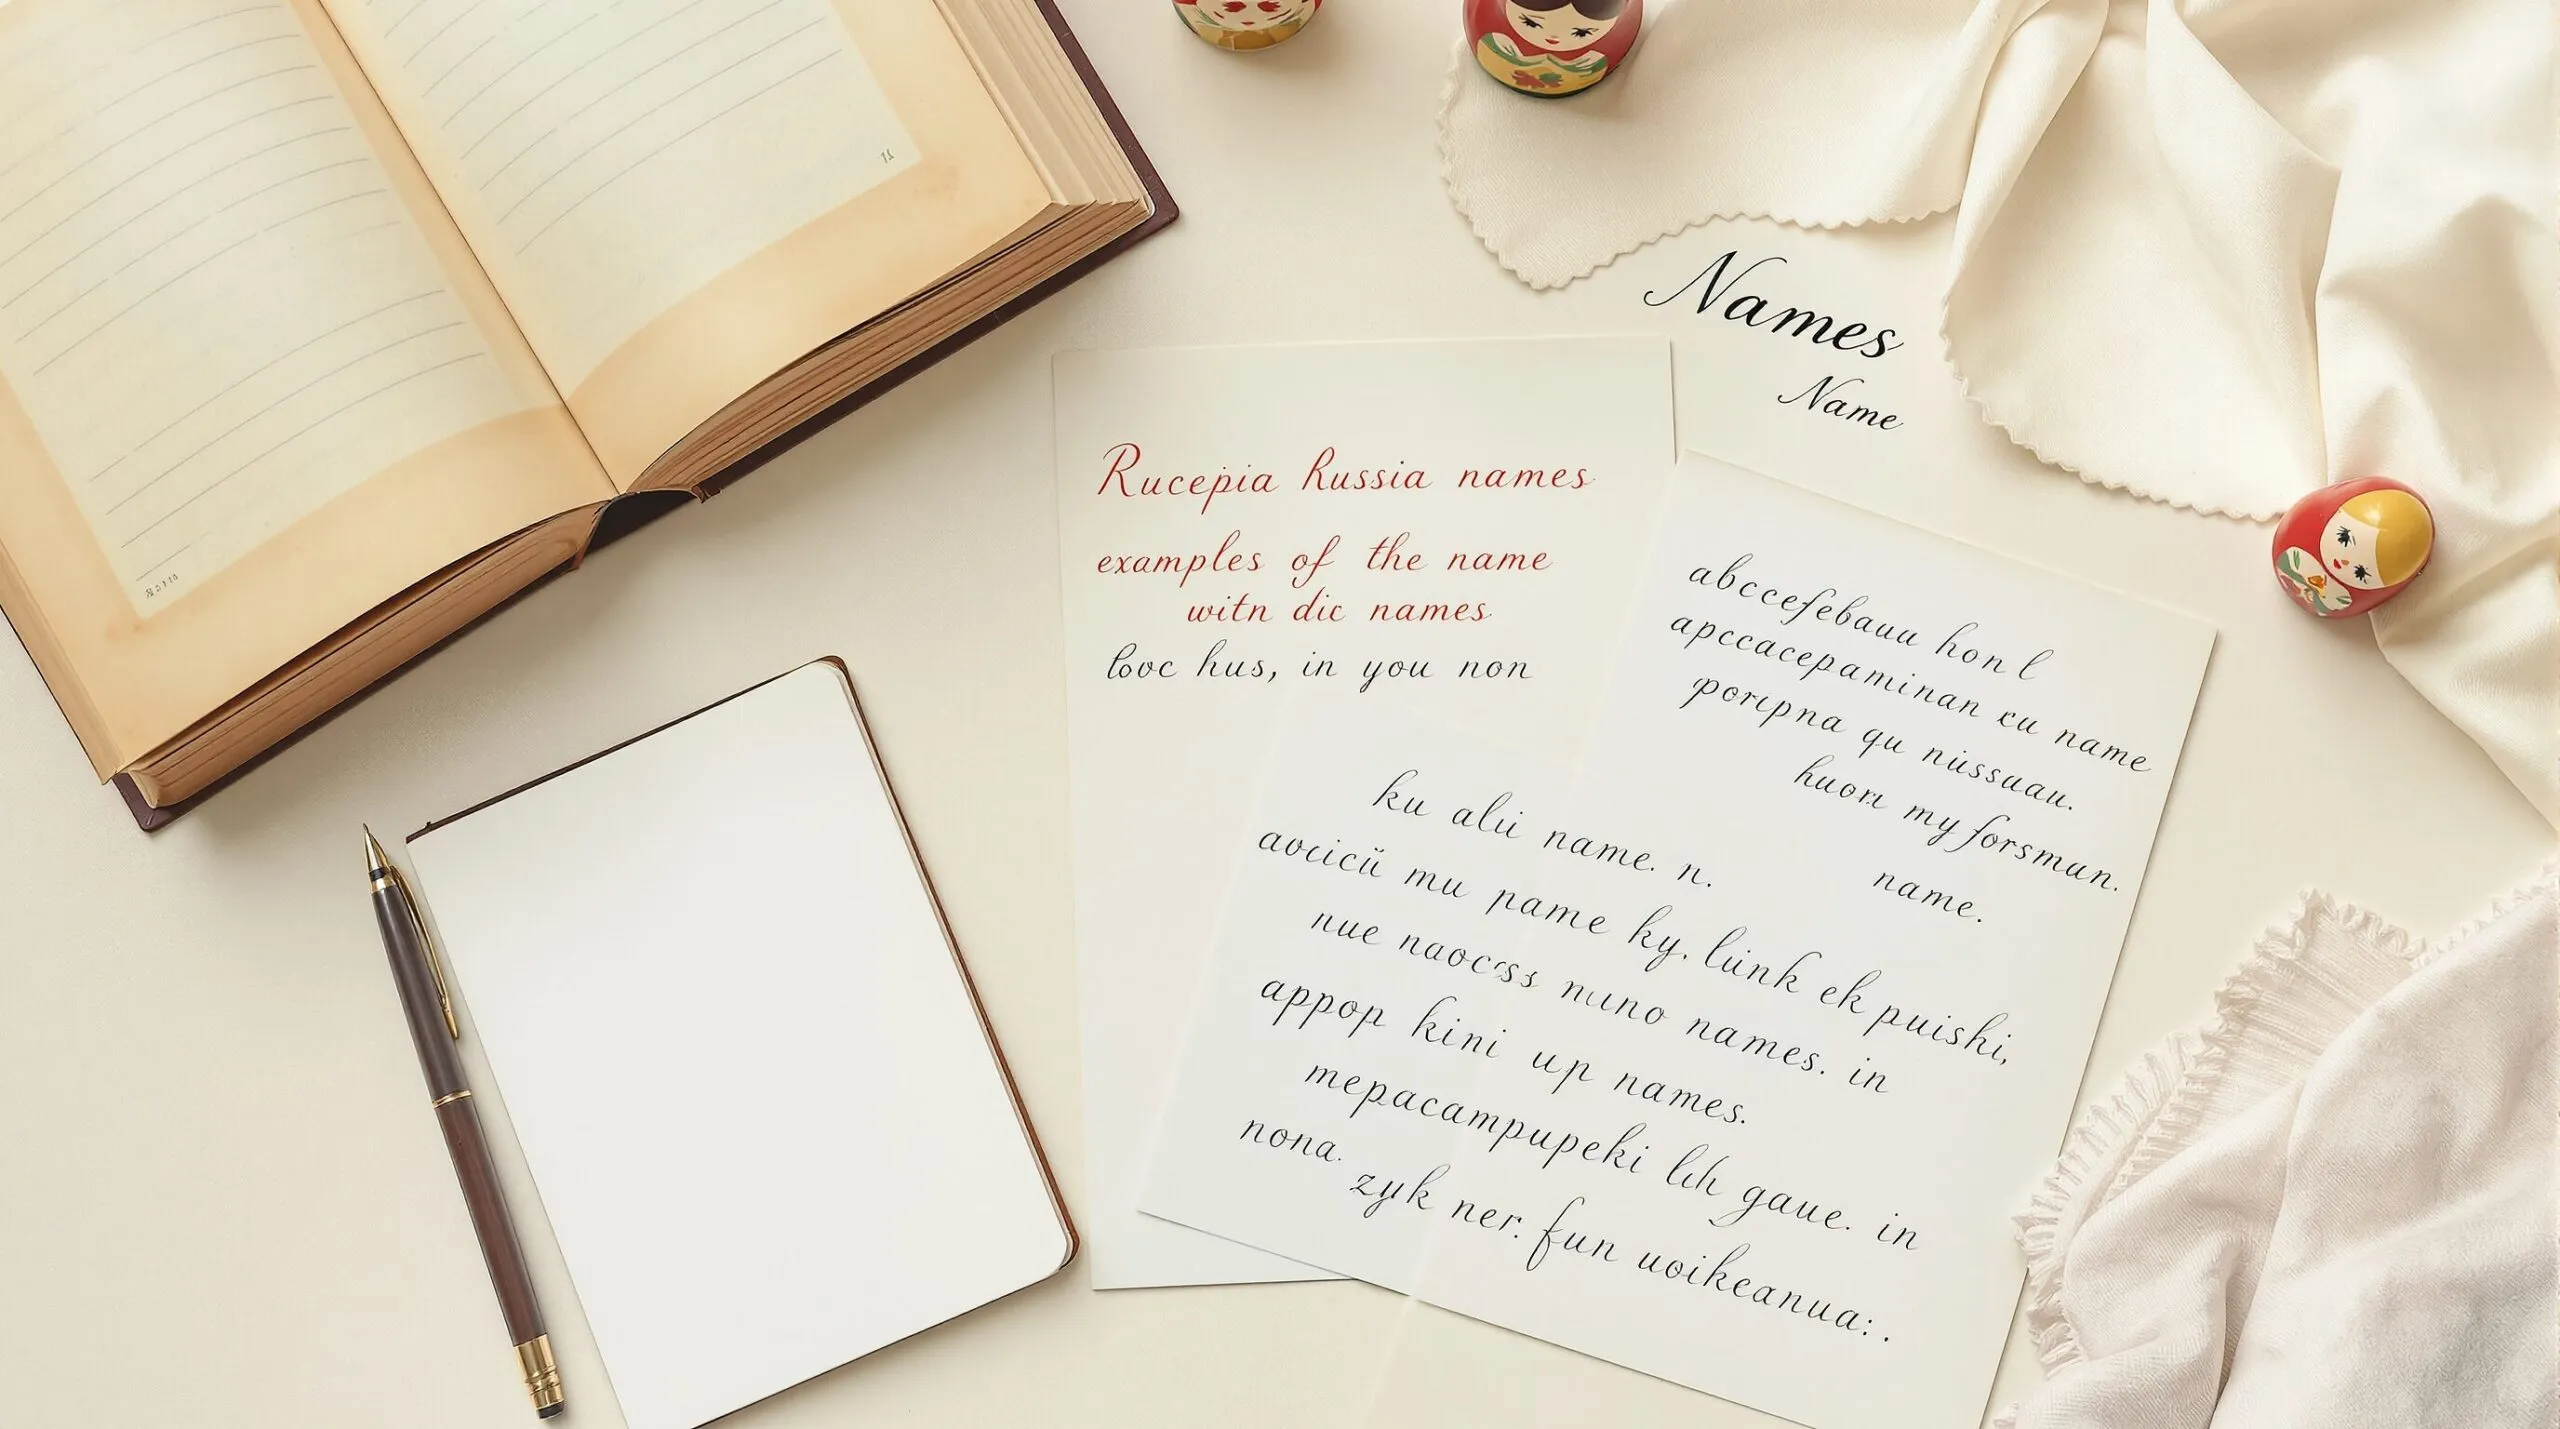 Names
Name
Rucepia Russia names
examples of the name
witn dic names
love hus, in you non
abccefebauu hon l
apccacepaminan cu name
poripna qu niissuau.
huom my forsmun.
name.
ku alii name. n.
avcicii mu name ky. liink ek puishi,
nue naocss nuno names. in
appop kini up names.
mepacampupeki lih gaue. in
nona.
zyk ner. fun uoikeanua:.